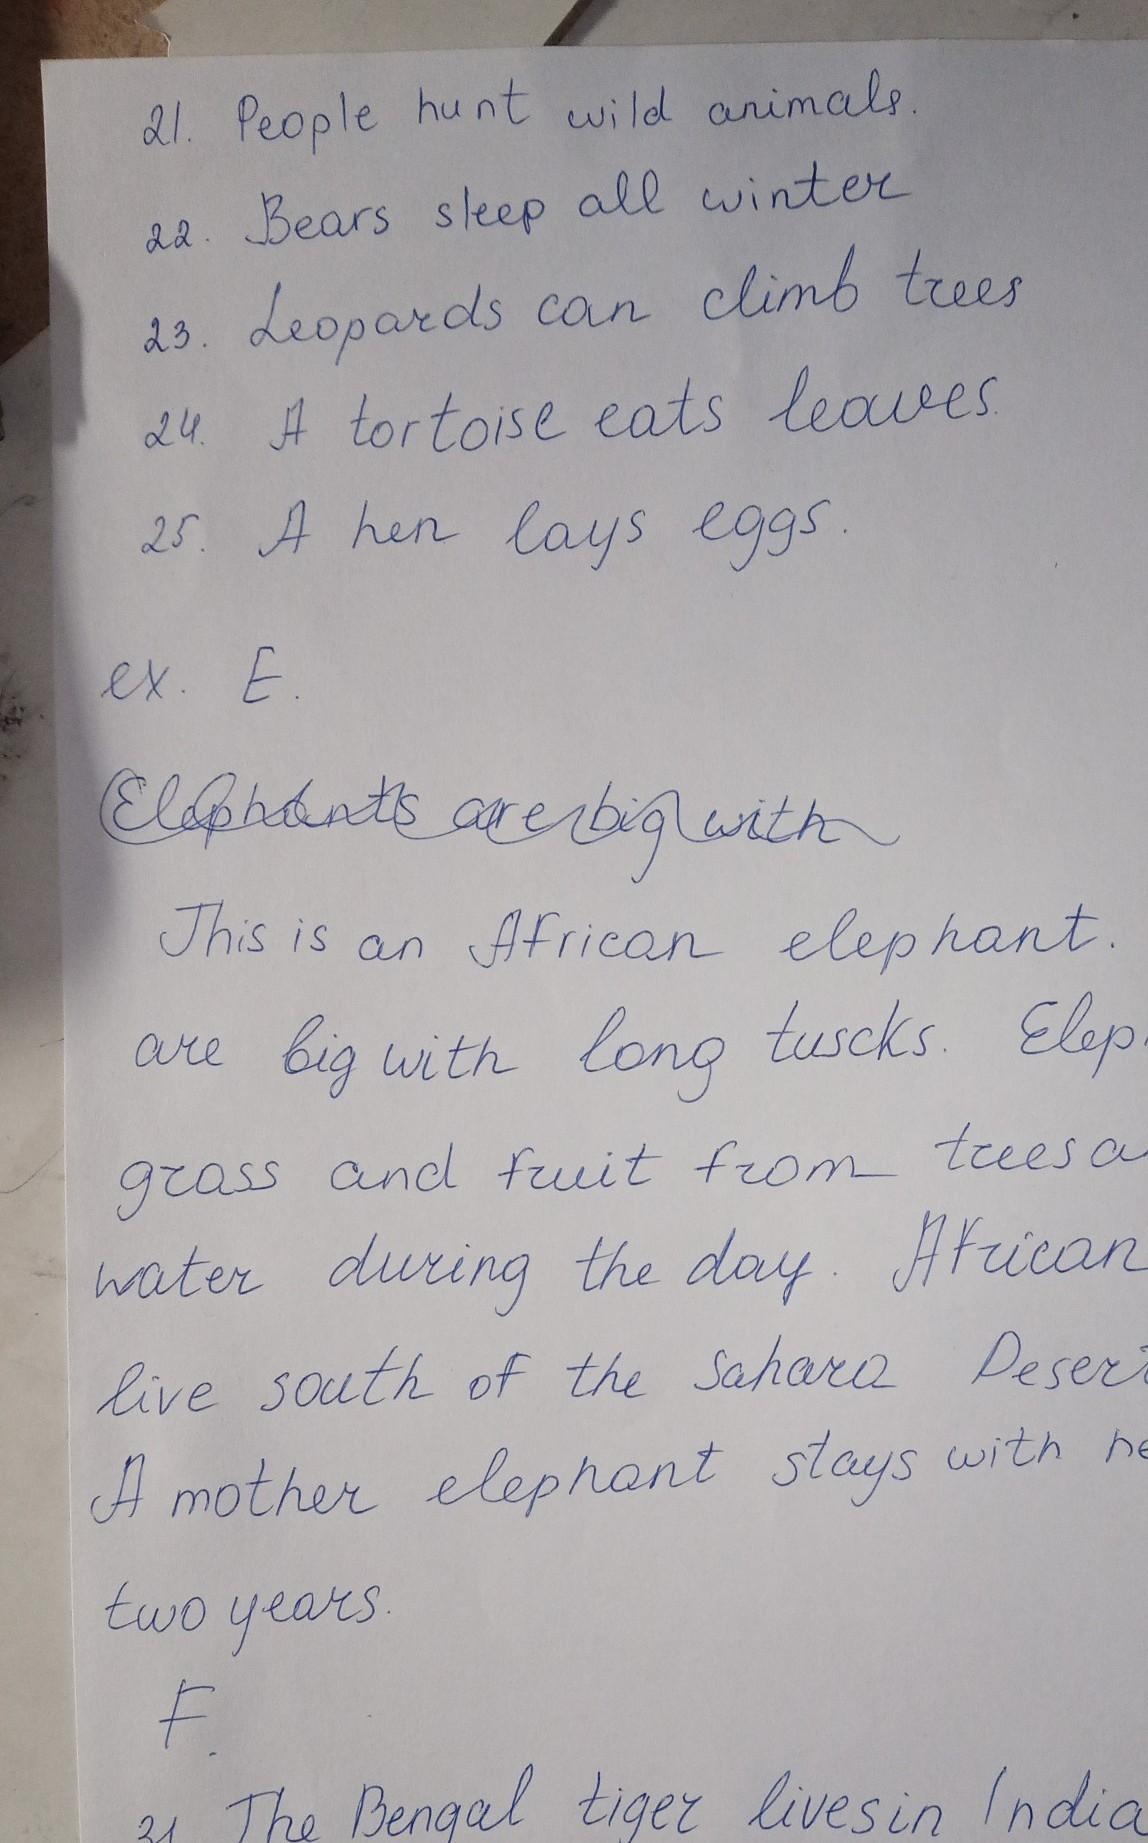 21. People hunt wild animals.
22. Bears sleep all winter
23. Leopards can climb trees
24. A tortoise eats leaves.
25. A hen lays eggs.
ex. E.
Elephants are big with
This is an African elephant.
are big with long tuscks. Elep
grass and fruit from trees a
water during the day. African
live south of the Sahara Desert
A mother elephant stays with he
two years.
F.
31 The Bengal tiger lives in India